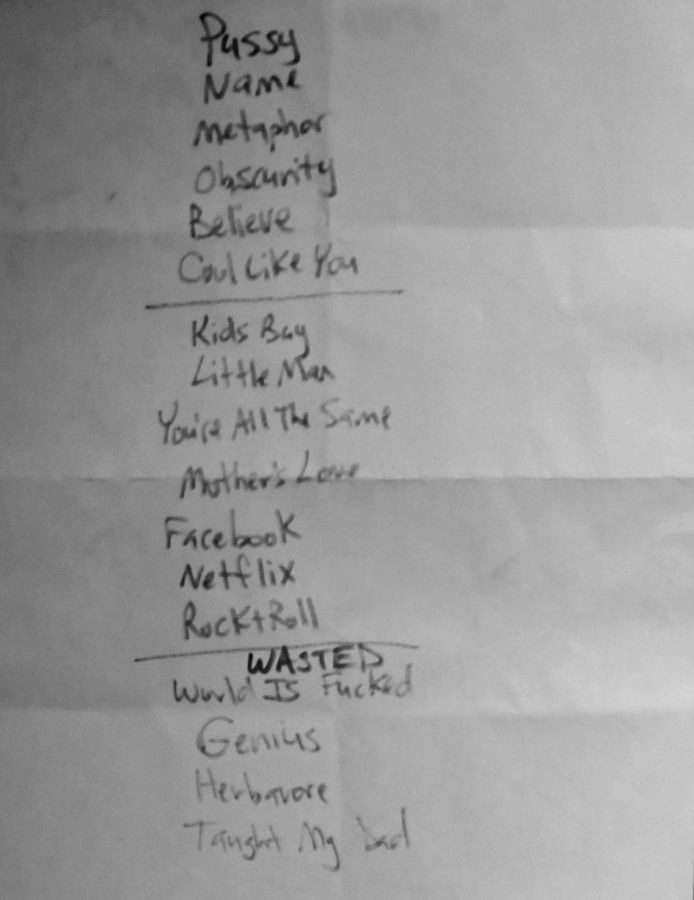 Pussy
Name
Metaphor
Obscurity
Believe
Cool Like You
Kids Buy
Little Man
You're All The Same
Mother's Love
Facebook
Netflix
Rock+Roll
WASTED
World Is Fucked
Genius
Herbavore
Taught My Dad